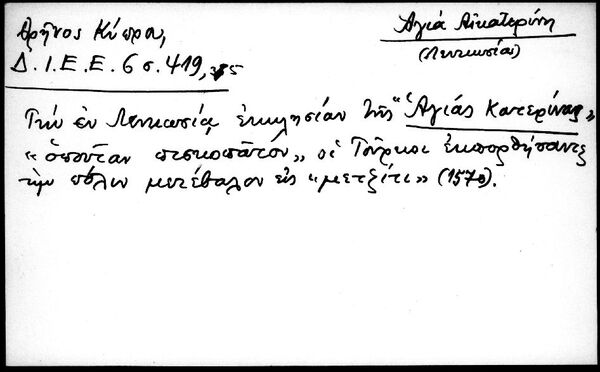 Θρῆνος Κύπρου,
Δ.Ι.Ε.Ε. 6 σ. 419,
Ἁγιά Αἰκατερίνη
(Λευκωσίαι)
Τήν ἐν Λευκωσίᾳ ἐκκλησίαν τῆς "Ἁγιάς Κατερίνας"
«ὁποὖταν πισκοπᾶτον», οἱ Τοῦρκοι ἐκπορθήσαντες
τήν πόλιν μετέβαλον εἰς «μετζίτι» (1570).